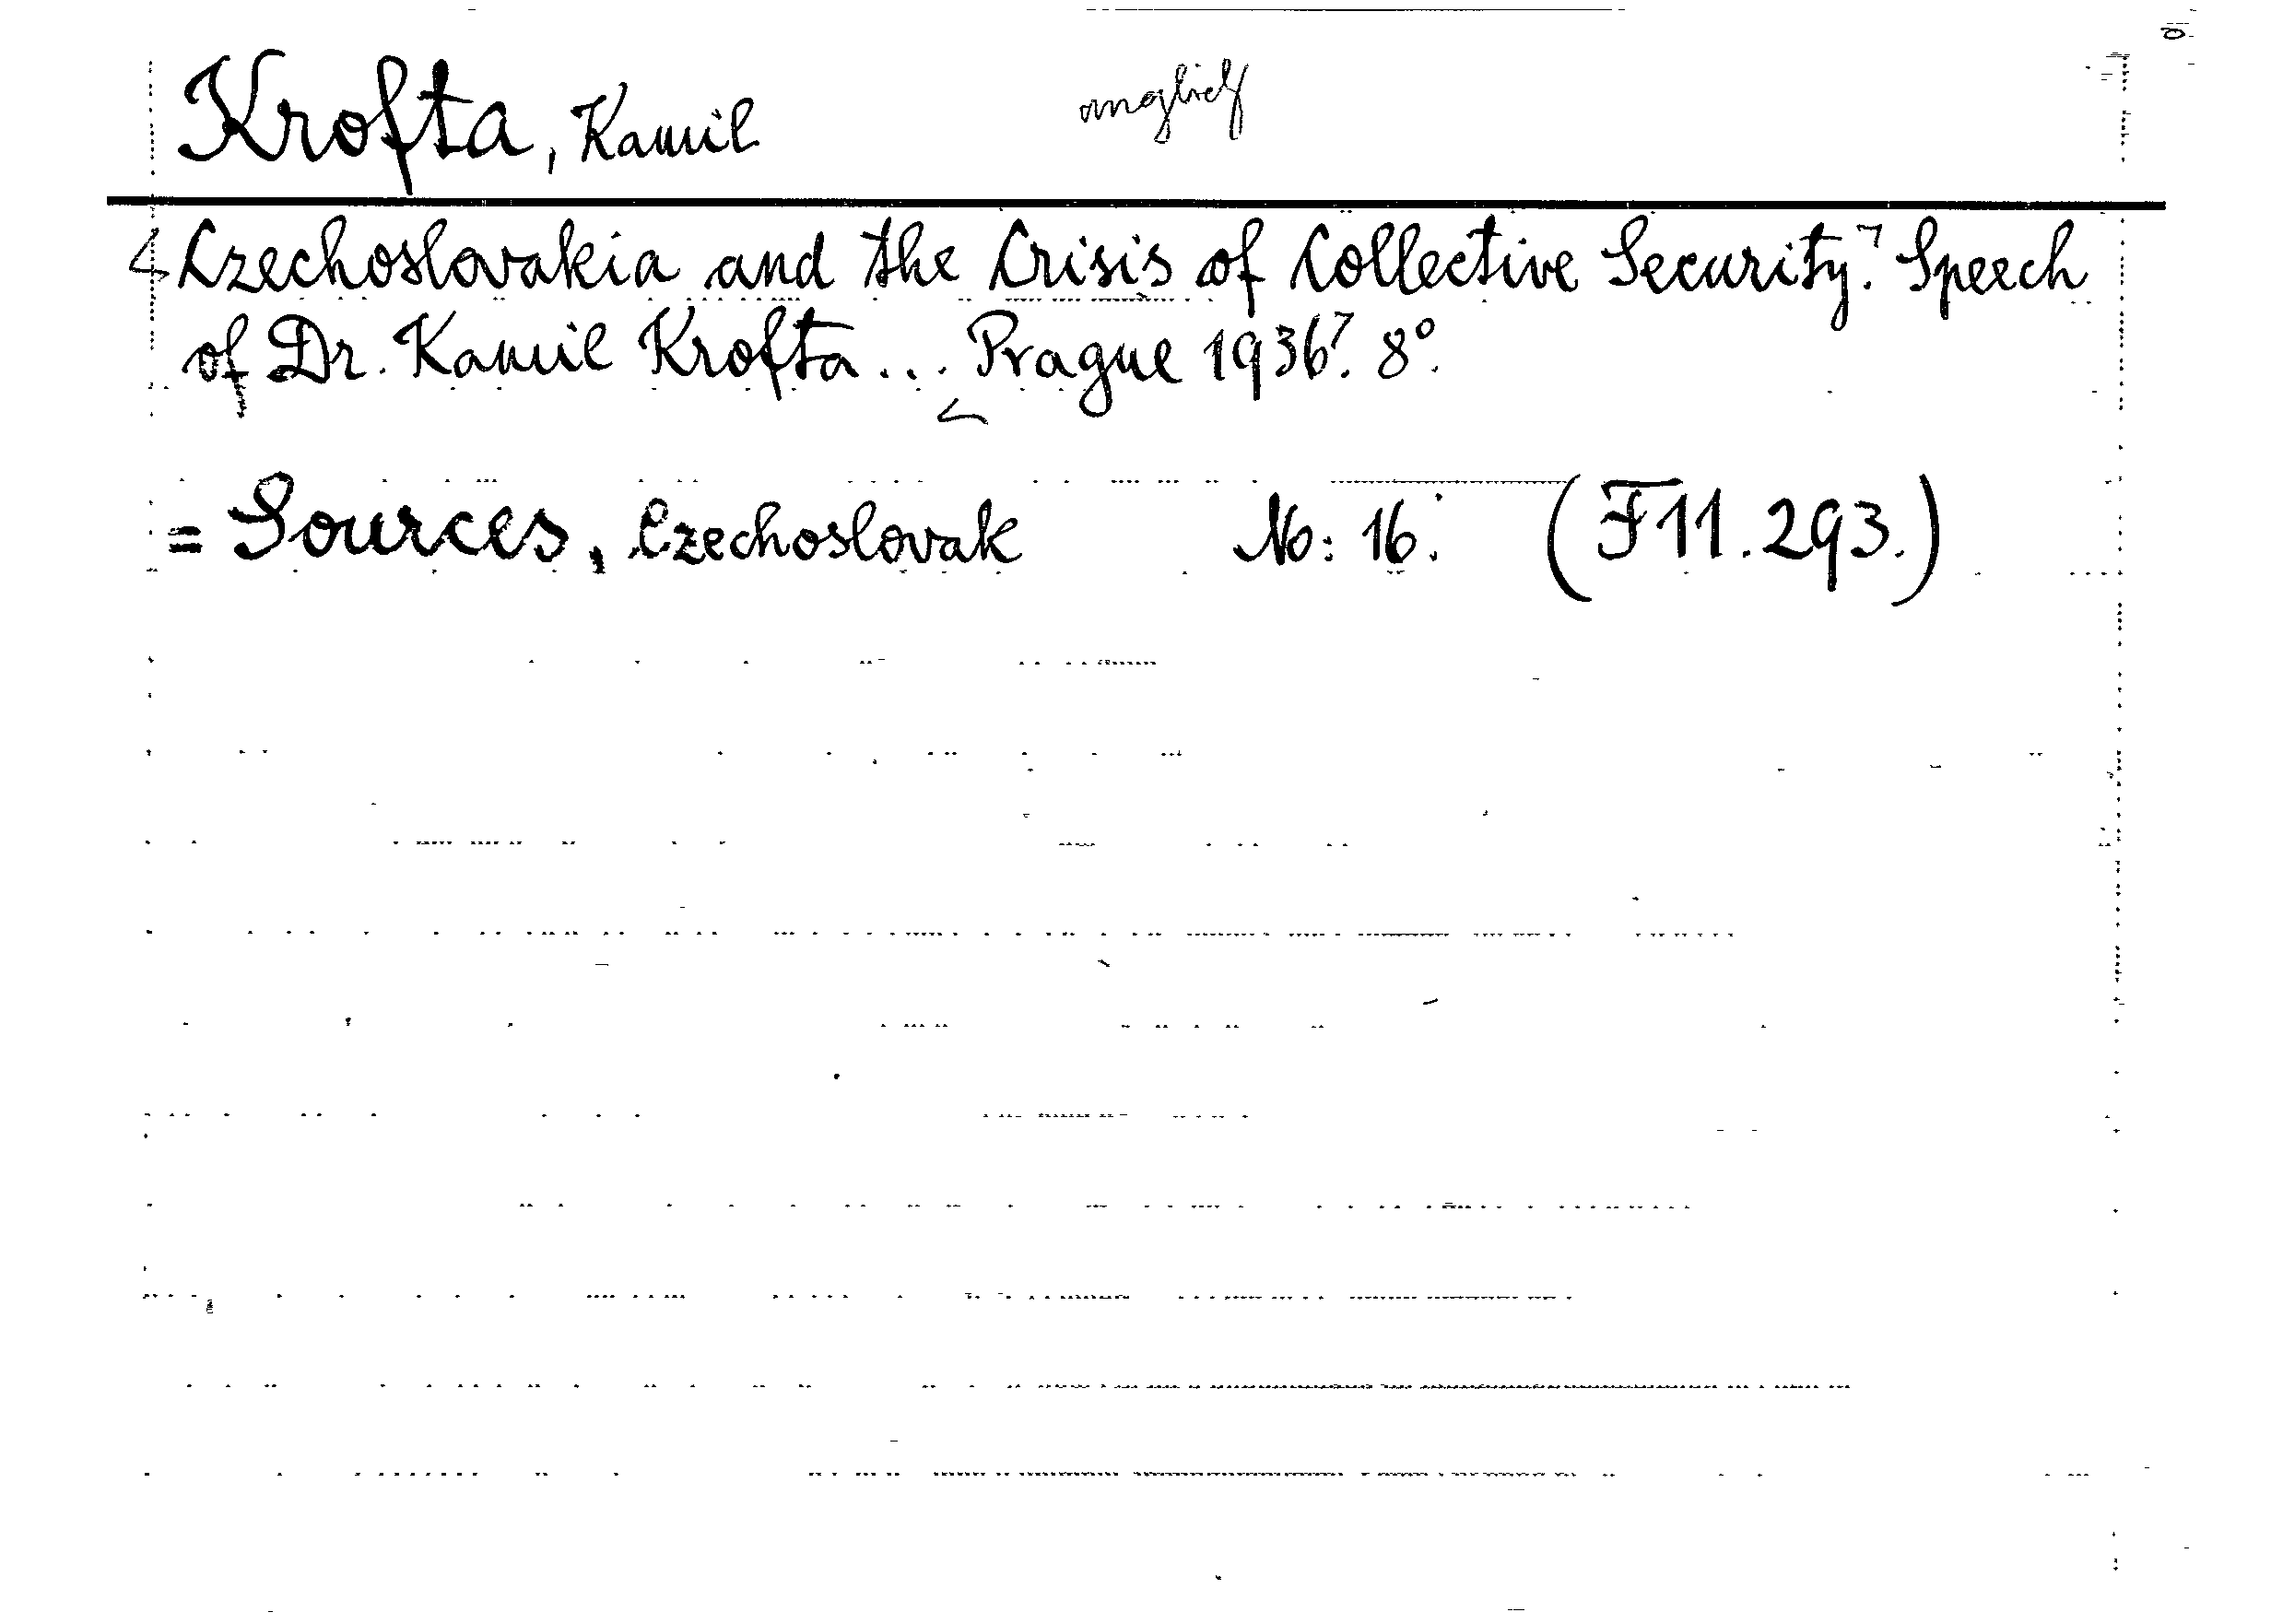 Krofta, Kamil
Czechoslovakia and the Crisis of Collective Security. Speech
of Dr. Kamil Krofta... Prague 1936. 8°.
= Sources, Czechoslovak No: 16. (F 11.293.)